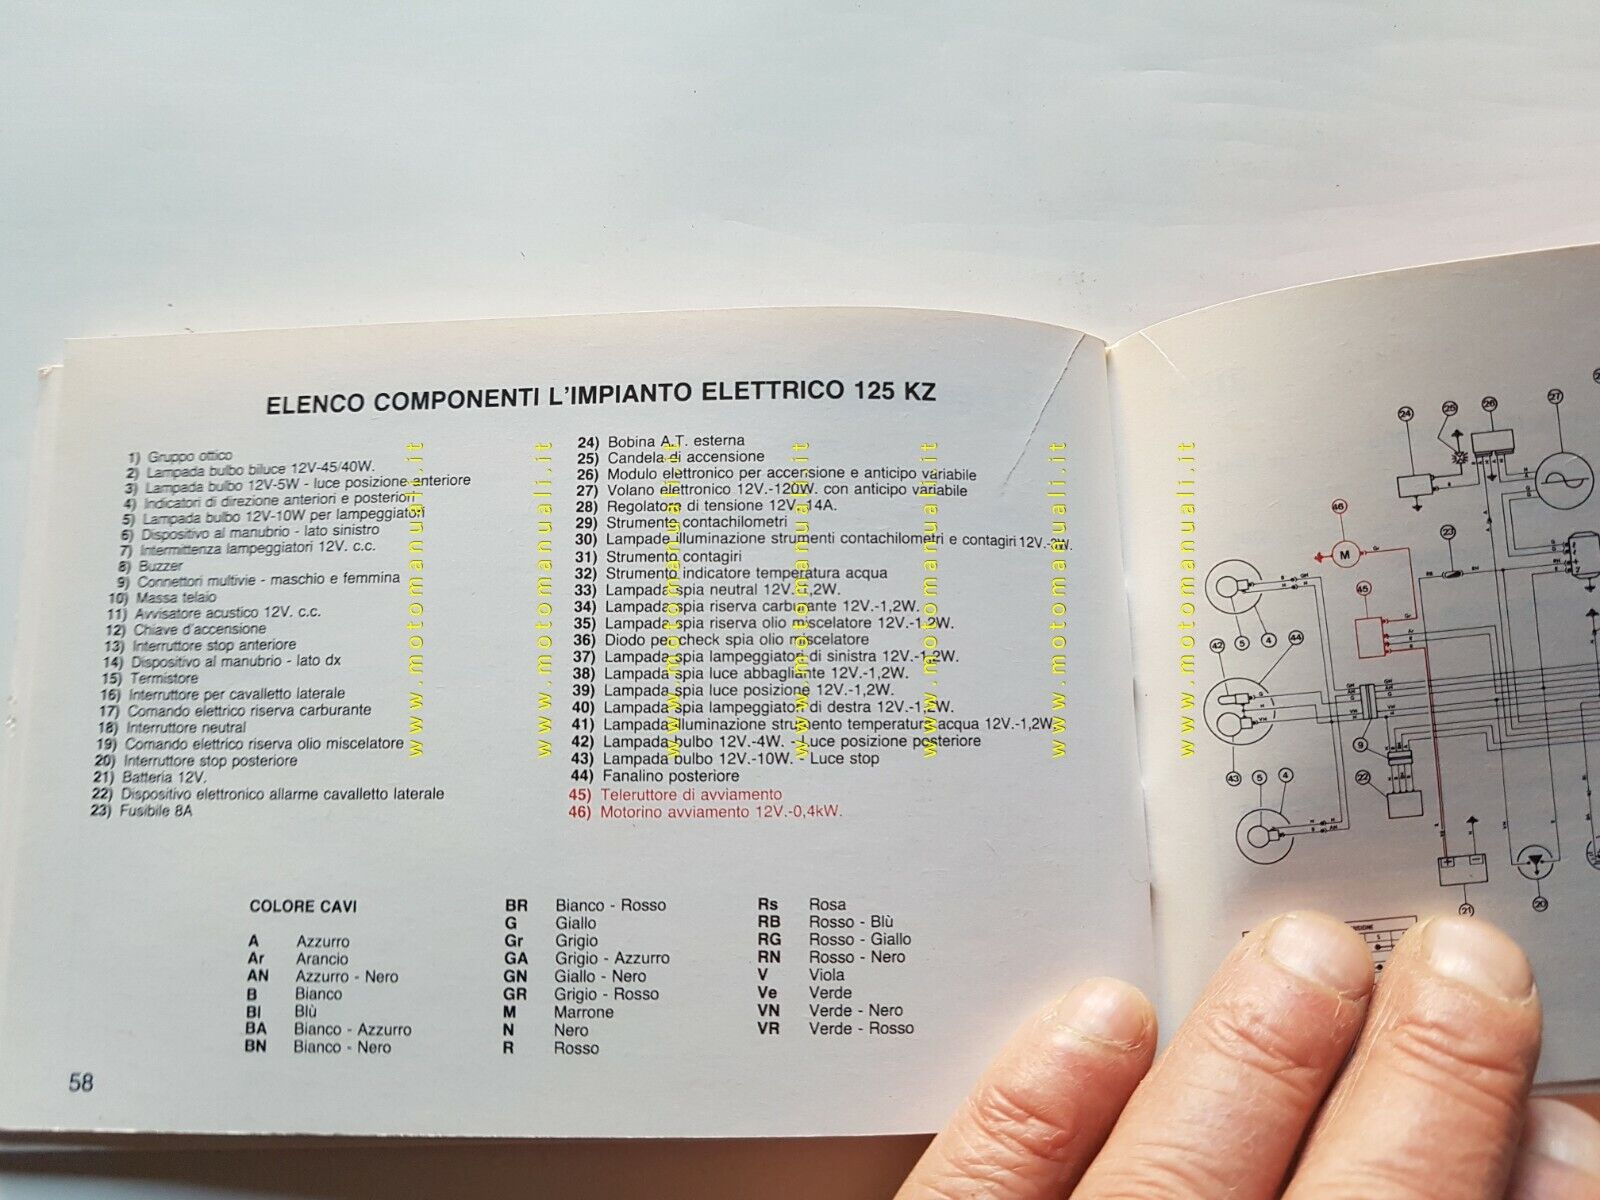 ELENCO COMPONENTI L'IMPIANTO ELETTRICO 125 KZ
1) Gruppo ottico
2) Lampada bulbo biluce 12V-45/40W.
3) Lampada bulbo 12V-5W - luce posizione anteriore
4) Indicatori di direzione anteriori e posteriori
5) Lampada bulbo 12V-10W per lampeggiatori
6) Dispositivo al manubrio - lato sinistro
7) Intermittenza lampeggiatori 12V. c.c.
8) Buzzer
9) Connettori multivie - maschio e femmina
10) Massa telaio
11) Avvisatore acustico 12V. c.c.
12) Chiave d'accensione
13) Interruttore stop anteriore
14) Dispositivo al manubrio - lato dx
15) Termistore
16) Interruttore per cavalletto laterale
17) Comando elettrico riserva carburante
18) Interruttore neutral
19) Comando elettrico riserva olio miscelatore
20) Interruttore stop posteriore
21) Batteria 12V.
22) Dispositivo elettronico allarme cavalletto laterale
23) Fusibile 8A
24) Bobina A.T. esterna
25) Candela di accensione
26) Modulo elettronico per accensione e anticipo variabile
27) Volano elettronico 12V.-120W. con anticipo variabile
28) Regolatore di tensione 12V.-14A.
29) Strumento contachilometri
30) Lampade illuminazione strumenti contachilometri e contagiri 12V.-2W.
31) Strumento contagiri
32) Strumento indicatore temperatura acqua
33) Lampada spia neutral 12V.-1,2W.
34) Lampada spia riserva carburante 12V.-1,2W.
35) Lampada spia riserva olio miscelatore 12V.-1,2W.
36) Diodo per check spia olio miscelatore
37) Lampada spia lampeggiatori di sinistra 12V.-1,2W.
38) Lampada spia luce abbagliante 12V.-1,2W.
39) Lampada spia luce posizione 12V.-1,2W.
40) Lampada spia lampeggiatori di destra 12V.-1,2W.
41) Lampada illuminazione strumento temperatura acqua 12V.-1,2W
42) Lampada bulbo 12V.-4W. - Luce posizione posteriore
43) Lampada bulbo 12V.-10W. - Luce stop
44) Fanalino posteriore
45) Teleruttore di avviamento
46) Motorino avviamento 12V.-0,4kW.
COLORE CAVI
A Azzurro
Ar Arancio
AN Azzurro - Nero
B Bianco
Bl Blù
BA Bianco - Azzurro
BN Bianco - Nero
BR Bianco - Rosso
G Giallo
Gr Grigio
GA Grigio - Azzurro
GN Giallo - Nero
GR Grigio - Rosso
M Marrone
N Nero
R Rosso
Rs Rosa
RB Rosso - Blù
RG Rosso - Giallo
RN Rosso - Nero
V Viola
Ve Verde
VN Verde - Nero
VR Verde - Rosso
58
www.motomanuali.it
www.motomanuali.it
www.motomanuali.it
www.motomanuali.it
www.motomanuali.it
www.motomanuali.it
www.motomanuali.it
24
25
26
27
46
M
23
45
5
4
44
42
9
43
5
4
22
21
20